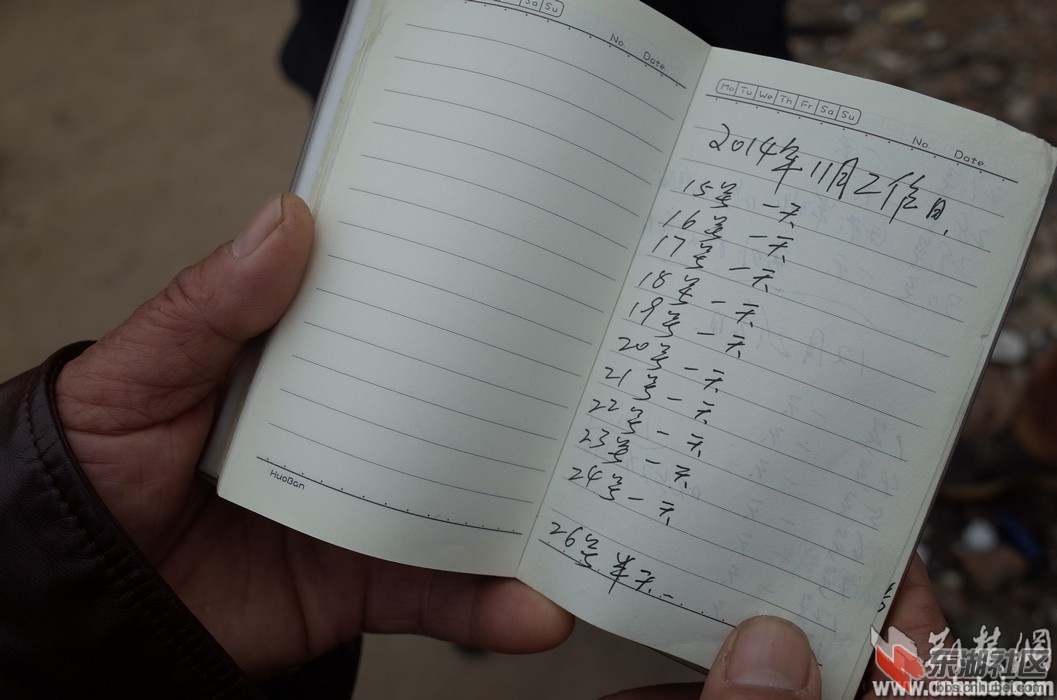 Sa Su
No. Date.
HuoBan
Mo Tu We Th Fr Sa Su
No. Date.
2014年11月工作日.
15号 一天
16号 一天
17号 一天
18号 一天
19号 一天
20号 一天
21号 一天
22号 一天
23号 一天
24号 一天
26号 半天
东湖社区